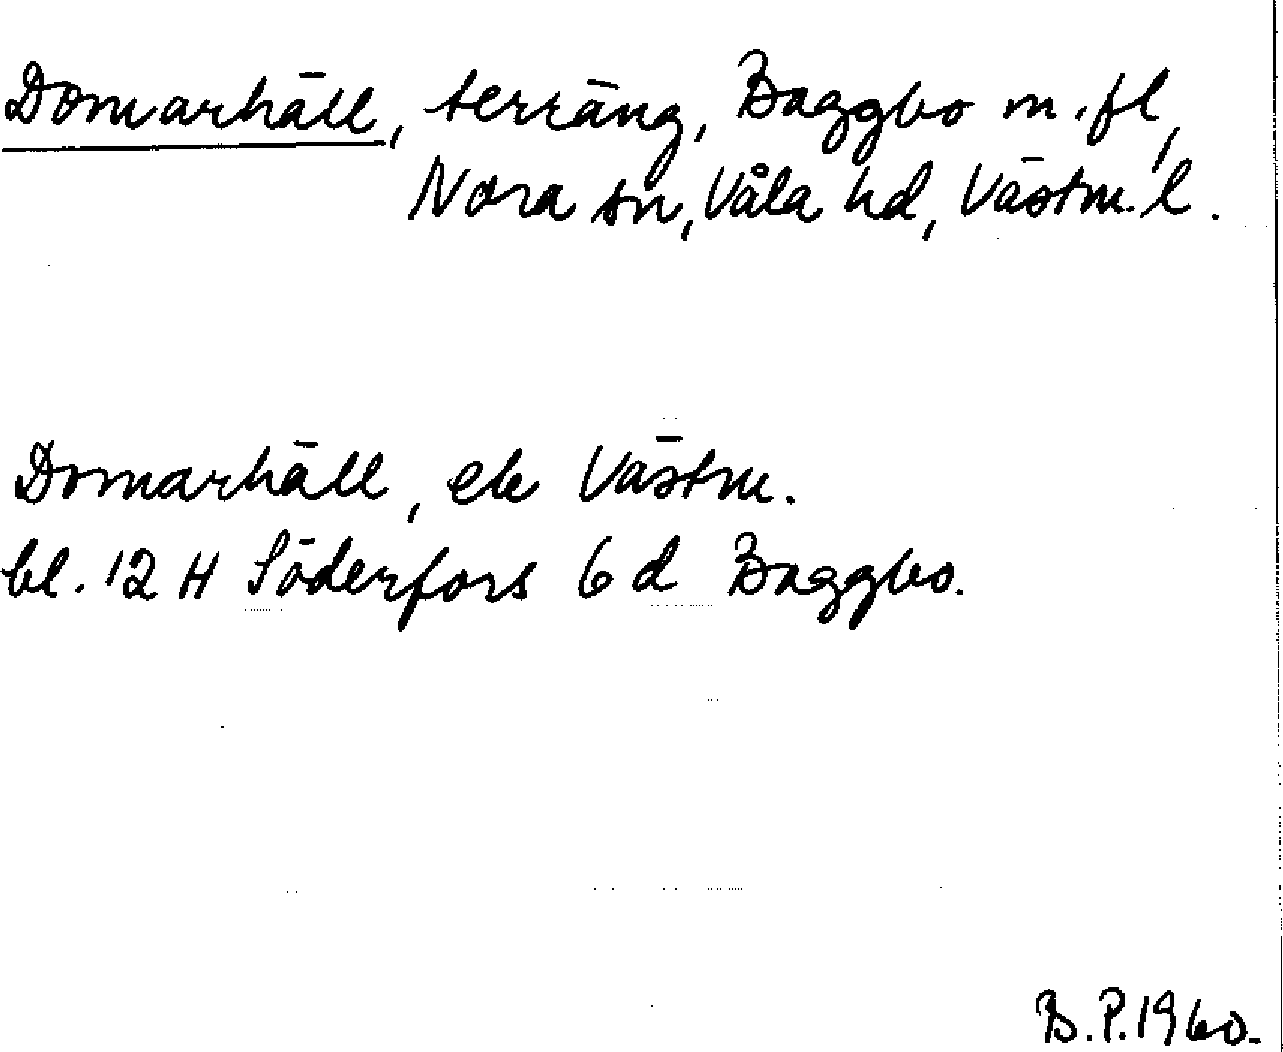 Domarhäll, terräng, Baggbo m.fl,
Nora sn, Våla hd, Västm.l.
Domarhäll, ek Västm.
bl. 12 H Söderfors 6 d Baggbo.
B.P.1960.